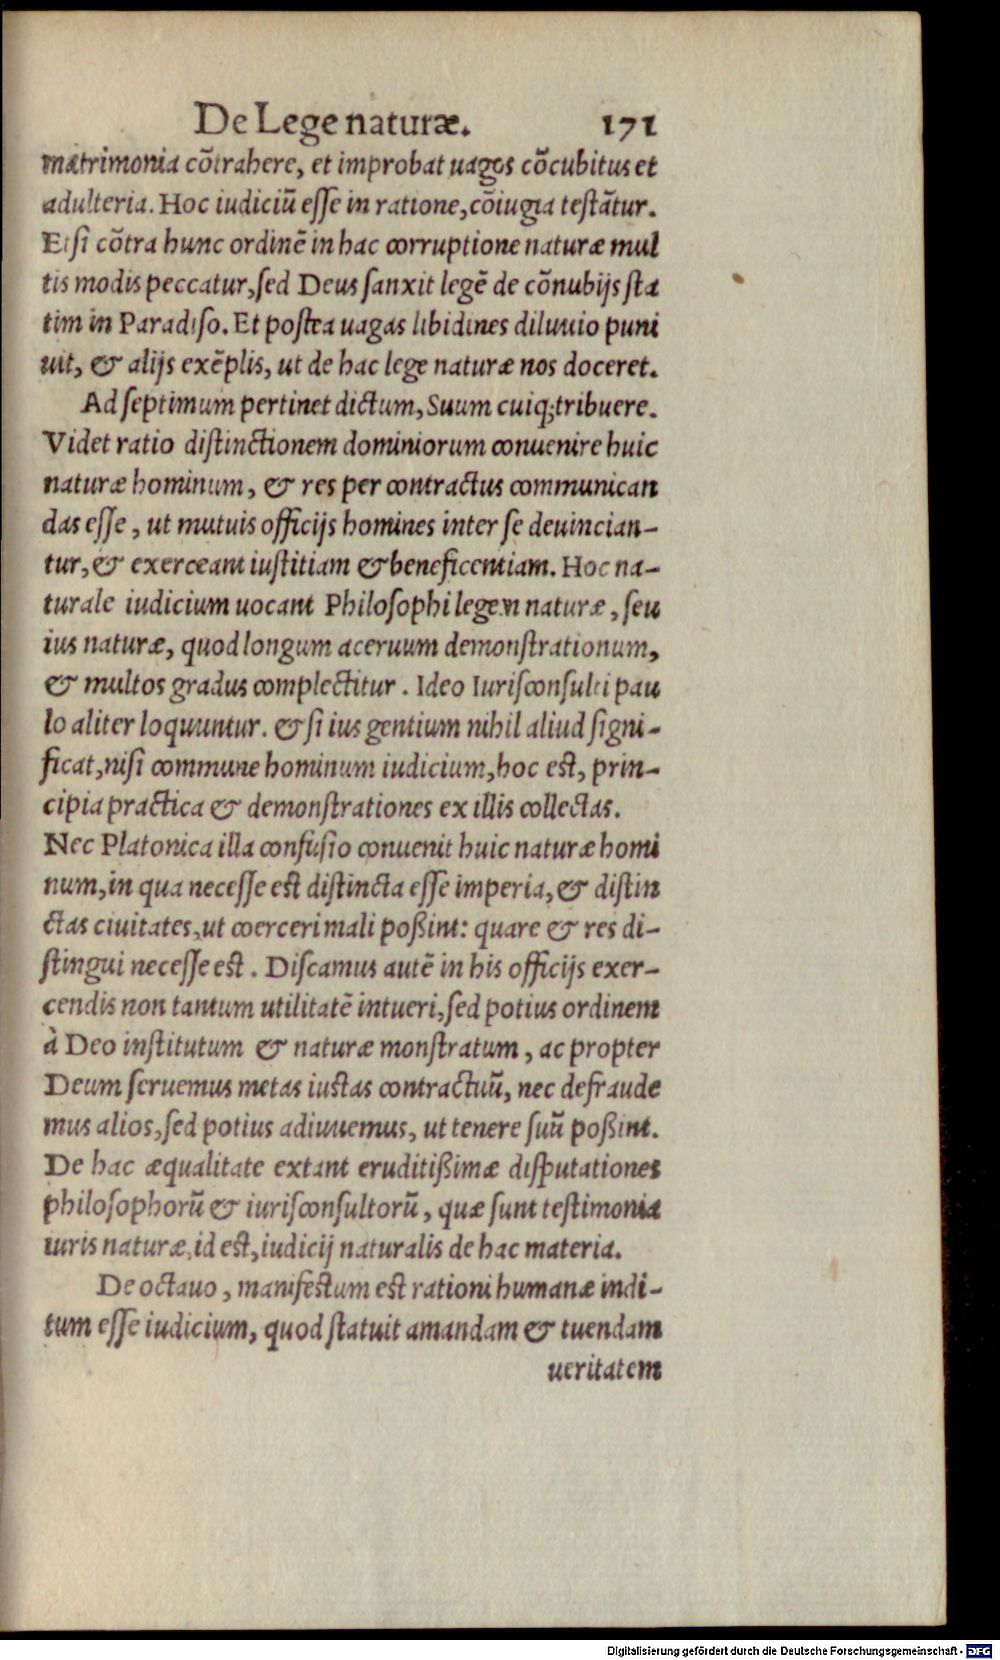 De Lege naturæ. 171
matrimonia cõtrahere, et improbat uagos cõcubitus et
adulteria. Hoc iudiciũ eſſe in ratione, cõiugia teſtãtur.
Etſi cõtra hunc ordinẽ in hac corruptione naturæ mul
tis modis peccatur, ſed Deus ſanxit legẽ de cõnubijs ſta
tim in Paradiſo. Et poſtea uagas libidines diluuio puni
uit, & alijs exẽplis, ut de hac lege naturæ nos doceret.
Ad ſeptimum pertinet dictum, Suum cuiq; tribuere.
Videt ratio diſtinctionem dominiorum conuenire huic
naturæ hominum, & res per contractus communican
das eſſe, ut mutuis officijs homines inter ſe deuincian-
tur, & exerceant iuſtitiam & beneficentiam. Hoc na-
turale iudicium uocant Philoſophi legem naturæ, ſeu
ius naturæ, quod longum aceruum demonſtrationum,
& multos gradus complectitur. Ideo Iuriſconſulti pau
lo aliter loquuntur. & ſi ius gentium nihil aliud ſigni-
ficat, niſi commune hominum iudicium, hoc eſt, prin-
cipia practica & demonſtrationes ex illis collectas.
Nec Platonica illa confuſio conuenit huic naturæ homi
num, in qua neceſſe eſt diſtincta eſſe imperia, & diſtin
ctas ciuitates, ut coerceri mali poßint: quare & res di-
ſtingui neceſſe eſt. Diſcamus autẽ in his officijs exer-
cendis non tantum utilitatẽ intueri, ſed potius ordinem
à Deo inſtitutum & naturæ monſtratum, ac propter
Deum ſeruemus metas iuſtas contractuũ, nec defraude
mus alios, ſed potius adiuuemus, ut tenere ſuũ poßint.
De hac æqualitate extant eruditißimæ diſputationes
philoſophorũ & iuriſconſultorũ, quæ ſunt teſtimonia
iuris naturæ, id eſt, iudicij naturalis de hac materia.
De octauo, manifeſtum eſt rationi humanæ indi-
tum eſſe iudicium, quod ſtatuit amandam & tuendam
ueritatem
Digitalisierung gefördert durch die Deutsche Forschungsgemeinschaft - DFG